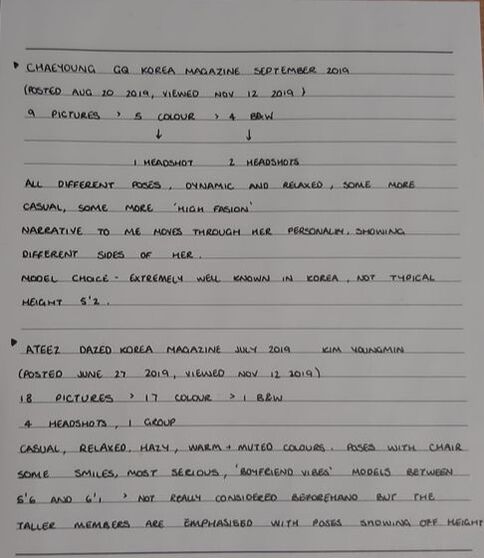 CHAEYOUNG GQ KOREA MAGAZINE SEPTEMBER 2019
(POSTED AUG 20 2019, VIEWED NOV 12 2019)
9 PICTURES > 5 COLOUR > 4 B&W
↓ ↓
1 HEADSHOT 2 HEADSHOTS
ALL DIFFERENT POSES, DYNAMIC AND RELAXED, SOME MORE
CASUAL, SOME MORE 'HIGH FASION'
NARRATIVE TO ME MOVES THROUGH HER PERSONALITY, SHOWING
DIFFERENT SIDES OF HER.
MODEL CHOICE - EXTREMELY WELL KNOWN IN KOREA, NOT TYPICAL
HEIGHT 5'2.
ATEEZ DAZED KOREA MAGAZINE JULY 2019 KIM YOUNGMIN
(POSTED JUNE 27 2019, VIEWED NOV 12 2019)
18 PICTURES > 17 COLOUR > 1 B&W
4 HEADSHOTS, 1 GROUP
CASUAL, RELAXED, HAZY, WARM + MUTED COLOURS. POSES WITH CHAIR
SOME SMILES, MOST SERIOUS, 'BOYFRIEND VIBES' MODELS BETWEEN
5'6 AND 6'1, > NOT REALLY CONSIDERED BEFOREHAND BUT THE
TALLER MEMBERS ARE EMPHASISED WITH POSES SHOWING OFF HEIGHT